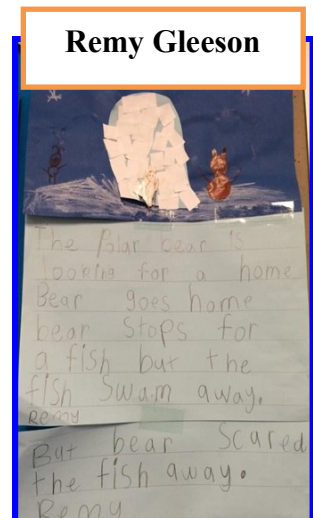 Remy Gleeson
The Polar bear is
looking for a home
Bear goes home
bear stops for
a fish but the
fish swam away.
Remy
But bear scared
the fish away.
Remy